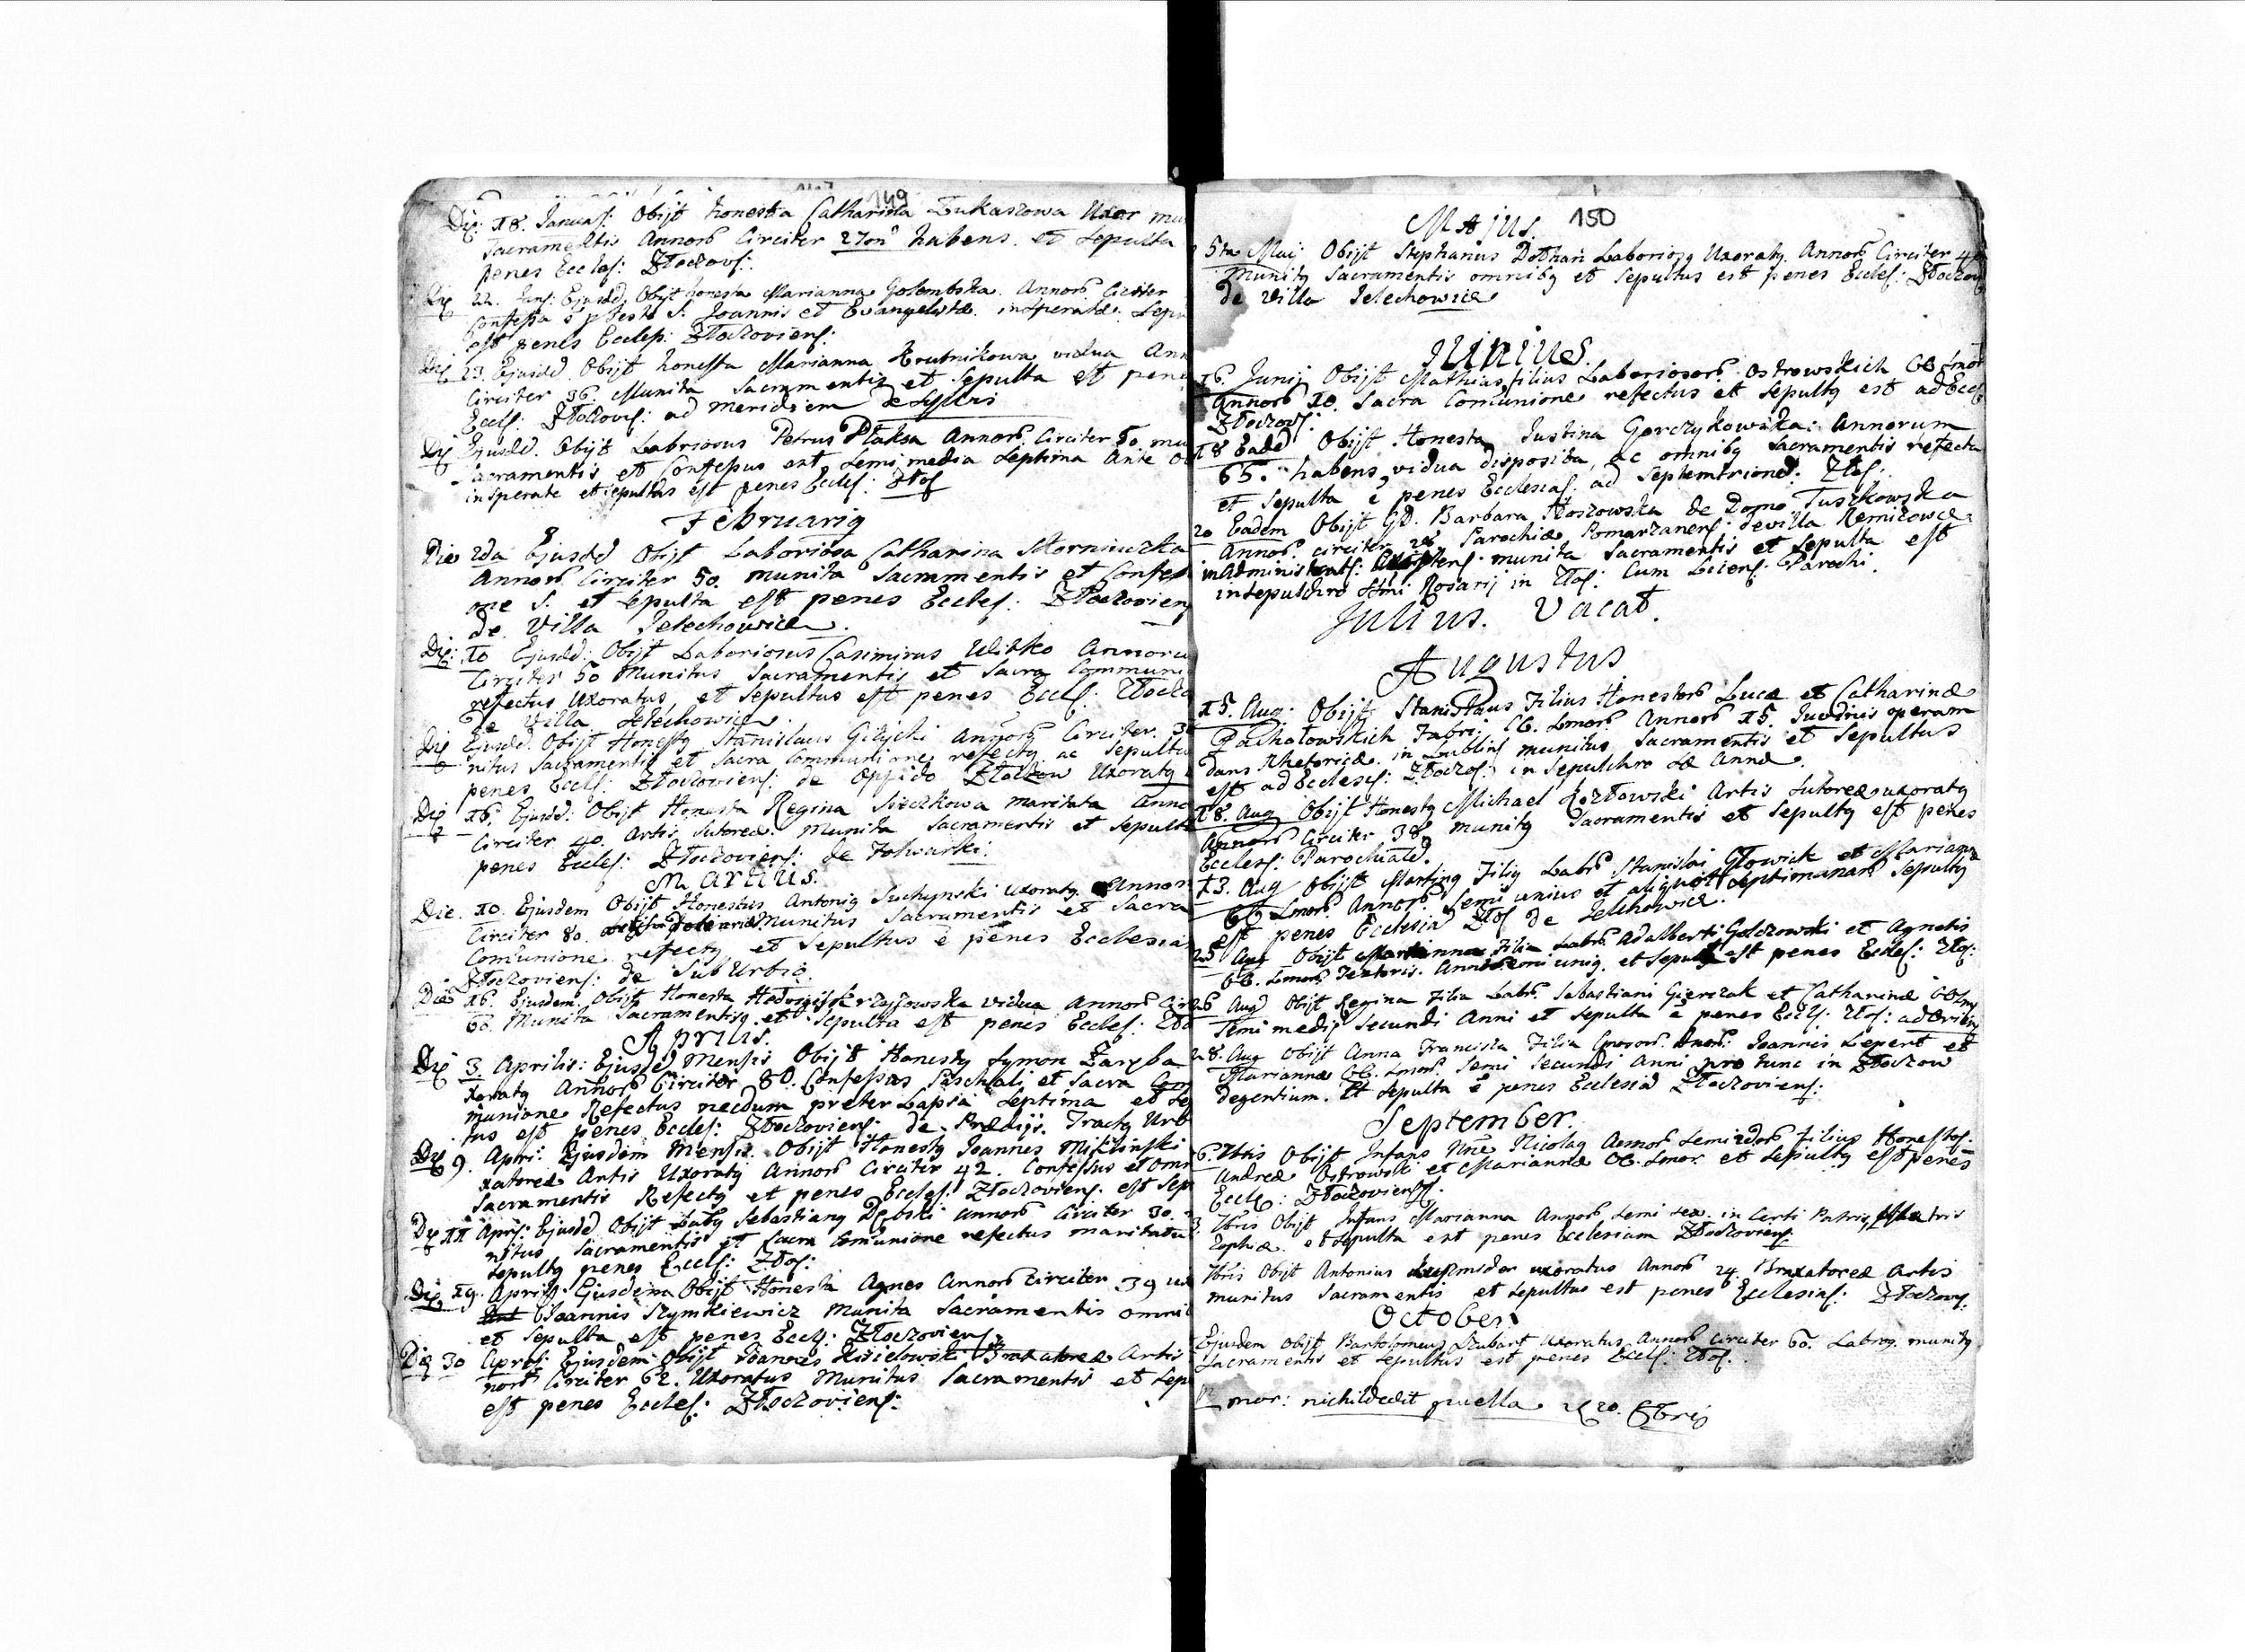 149
Die 18. Januar: Obijt honesta Catharina Łukaszowa Uxor mu
Sacramentis Annorũ Circiter 27on habens et Sepulta
penes Eccles: Złoczov:
Die 22. Jan: Ejusdẽ Obijt honesta Marianna Golembska Annorũ Circiter
Confessa Festo S. Joannis et Evangelistæ insperatæ Sepu
est penes Eccles: Złoczoviens:
Die 23. Ejusdẽ Obijt honesta Marianna Krutnikowa vidua Ann
Circiter 36. Munita Sacramentis et Sepulta est pene
Eccls: Złoczovs: ad meridiem
Die Ejusdẽ. Obijt Laboriosus Petrus Płaksa Annorũ Circiter 50 mu
Sacramentis et Confessus est Semi media Septima Ante
insperate et sepultus est penes Eccles: Złos
Februariq
Die 2da Ejusdẽ Obijt Laboriosa Catharina
Annorũ Circiter 50. munita Sacramentis et Confes
one S. et Sepulta est penes Eccles: Złoczoviens
de Villa Jelechowice.
Die: 10 Ejusdẽ: Obijt Laboriosus Casimirus Witko Annoru
Circiter 50 Munitus Sacramentis et Sacra Communi
refectus Uxoratus et Sepultus est penes Eccls: Złocko
de Villa Jelechowice.
Die Ejusdẽ. Obijt Honestq Stanislaus Giżycki Annorũ Circiter. 30
nitus Sacramentis et Sacra Communione refectq ac Sepultu
penes Eccls: Złoczoviens: de Oppido Złoczow Uxoratq
Die 16. Ejusdẽ: Obijt Honesta Regina Siczkowa maritata Anno
Circiter 40. Artis Sutoreæ. Munita Sacramentis et Sepulta
penes Eccles: Złoczoviens: de Folwarki.
Martius.
Die. 10. Ejusdem Obijt Honestus Antoniq Suchynski Uxoratq Annor
Circiter 80. Munitus Sacramentis et Sacra
Com̃unione refectq et Sepultus ẽ penes Ecclesia
Złoczoviens: de SubUrbio.
Die 16. Ejusdem. Obijt Honesta Hedvigis vidua Annorũ Cir
60. Munita Sacramentisq et Sepulta est penes Eccles: Zło
Aprilis.
Die 3. Aprilis: Ejusdẽ Mensis Obijt Honestq Symon Zaręba
xoratq Annorũ Circiter 80. Confessus Paschali et Sacra Com
munione Refectus necdum preterLapsa Septima et Se
tus est penes Eccles: Złoczoviens: de Prædijs. Tractq Urb
Die 9. Apri: Ejusdem Mensis. Obijt Honestq Joannes Miklinski
xatoreæ Artis Uxoratq Annorũ Circiter 42. Confessus et omn
Sacramentis Refectq et penes Eccles: Złoczoviens. est Sep
Die 11 Apri: Ejusdẽ Obijt Labq Sebastianq Dębski annorũ Circiter 30.
nitus Sacramentis et Sacra Com̃unione refectus maritatu
Sepultq penes Eccls: Złos:
Die 19. Aprilis Ejusdem Obijt Honesta Agnes Annorũ Circiter 39
Joannis Szymkiewicz Munita Sacramentis omnib
et Sepulta est penes Eccls: Złoczoviens:
Die 30 Aprls: Ejusdem Obijt Joannes Kisielowski Braxatoreæ Artis
norũ Circiter 62. Uxoratus Munitus Sacramentis et Sep
est penes Eccles: Złoczoviens:
150
Majus.
5ta Maij Obijt Stephanus Dothan Laboriosq Uxoratq Annorũ Circiter 4
Munitq Sacramentis omnibq et Sepultus est penes Eccles: Złoczov
de Villa Jelechowice
Junius.
16. Junij Obijt Mathias filius Laboriosorũ Ostrowskich CC Lmor
Annorũ 10. Sacra Comunione refectus et Sepultq est ad Eccl
Złoczovs:
18 Eadẽ Obijt Honesta Justina Gorczykowska: Annorum
65. habens, vidua disposita, ac omnibq Sacramentis refecta
et Sepulta ẽ penes Ecclesias ad Septemtrionẽ. Złos:
20 Eadem Obijt GD. Barbara Koszowska de Domo Tuszkowska
Annorũ circiter 28 Parochiæ Pomarzanens: de villa Remizowce
in Administrats: munita Sacramentis et Sepulta est
in sepulchro Rosarij in Złos: Cum Licens: Parochi.
Julius. Vacat.
Augustus
15. Aug: Obijt Stanislaus Filius Honestorũ Lucæ et Catharinæ
Pachołowskich Fabri CC. Lmorũ Annorũ 15. operam
dans Rhetoricæ in Lublins munitus Sacramentis et Sepultus
est ad Ecclesis: Złoczos: in Sepulchro Annæ.
18. Aug Obijt Honestq Michael Kozłowski Artis Sutoreæ uxoratq
Annorũ Circiter 38 munitq Sacramentis et Sepultq est penes
Eccless: Parochialẽ.
13. Aug Obijt Martinq Filiq Labũ Stanislai Głowick et Mariana
CC Lmorũ Annorũ Semi unius et aliquot Septimanarũ Sepultq
est penes Ecclesiã Złos de Jelehowice.
25 Aug Obijt Marianna Filia Labrũ Adalberti Golczowski et Agnetis
CC. Lmorũ Textoris. Anni semi uniq. et Sepulta est penes Eccles: Złos:
26 Aug Obijt Regina Filia Labrũ Sebastiani Gierczak et Catharinæ CC Lm
Semi medis Secundi Anni et Sepulta ẽ penes Eccls: Złos: ad Oriens
28. Aug Obijt Anna Francisca Filia Joannis Lepert et
Mariannæ CC. Lmorũ. Semi Secundi Anni pro tunc in Złoczow
degentium. Et Sepulta ẽ penes Ecclesiã Złoczoviens:
September.
6. 7bris Obijt Infans Nñe Nicolaq Annorũ Semi 2dorũ filius Honestor.
Andreæ Ostrowski et Mariannæ CC. Lmor. et Sepultq est penes
Eccls: Złoczoviens.
3 7bris Obijt Infans Marianna Annorũ Semi sex. in Certi Patris, Matris
Zophiæ. et Sepulta est penes Ecclesiam Złoczoviens.
7bris Obijt Antonius uxoratus Annorũ 24 Braxatoreæ Artis
munitus Sacramentis et Sepultus est penes Ecclesias: Złoczovs:
October.
Ejusdem Obijt Bartolomeus Dzubart Uxoratus Annorũ circiter 60. Labros. munitq
Sacramentis et Sepultus est penes Eccls: Złos.
mor: nichil dedit puella 20. 8bris